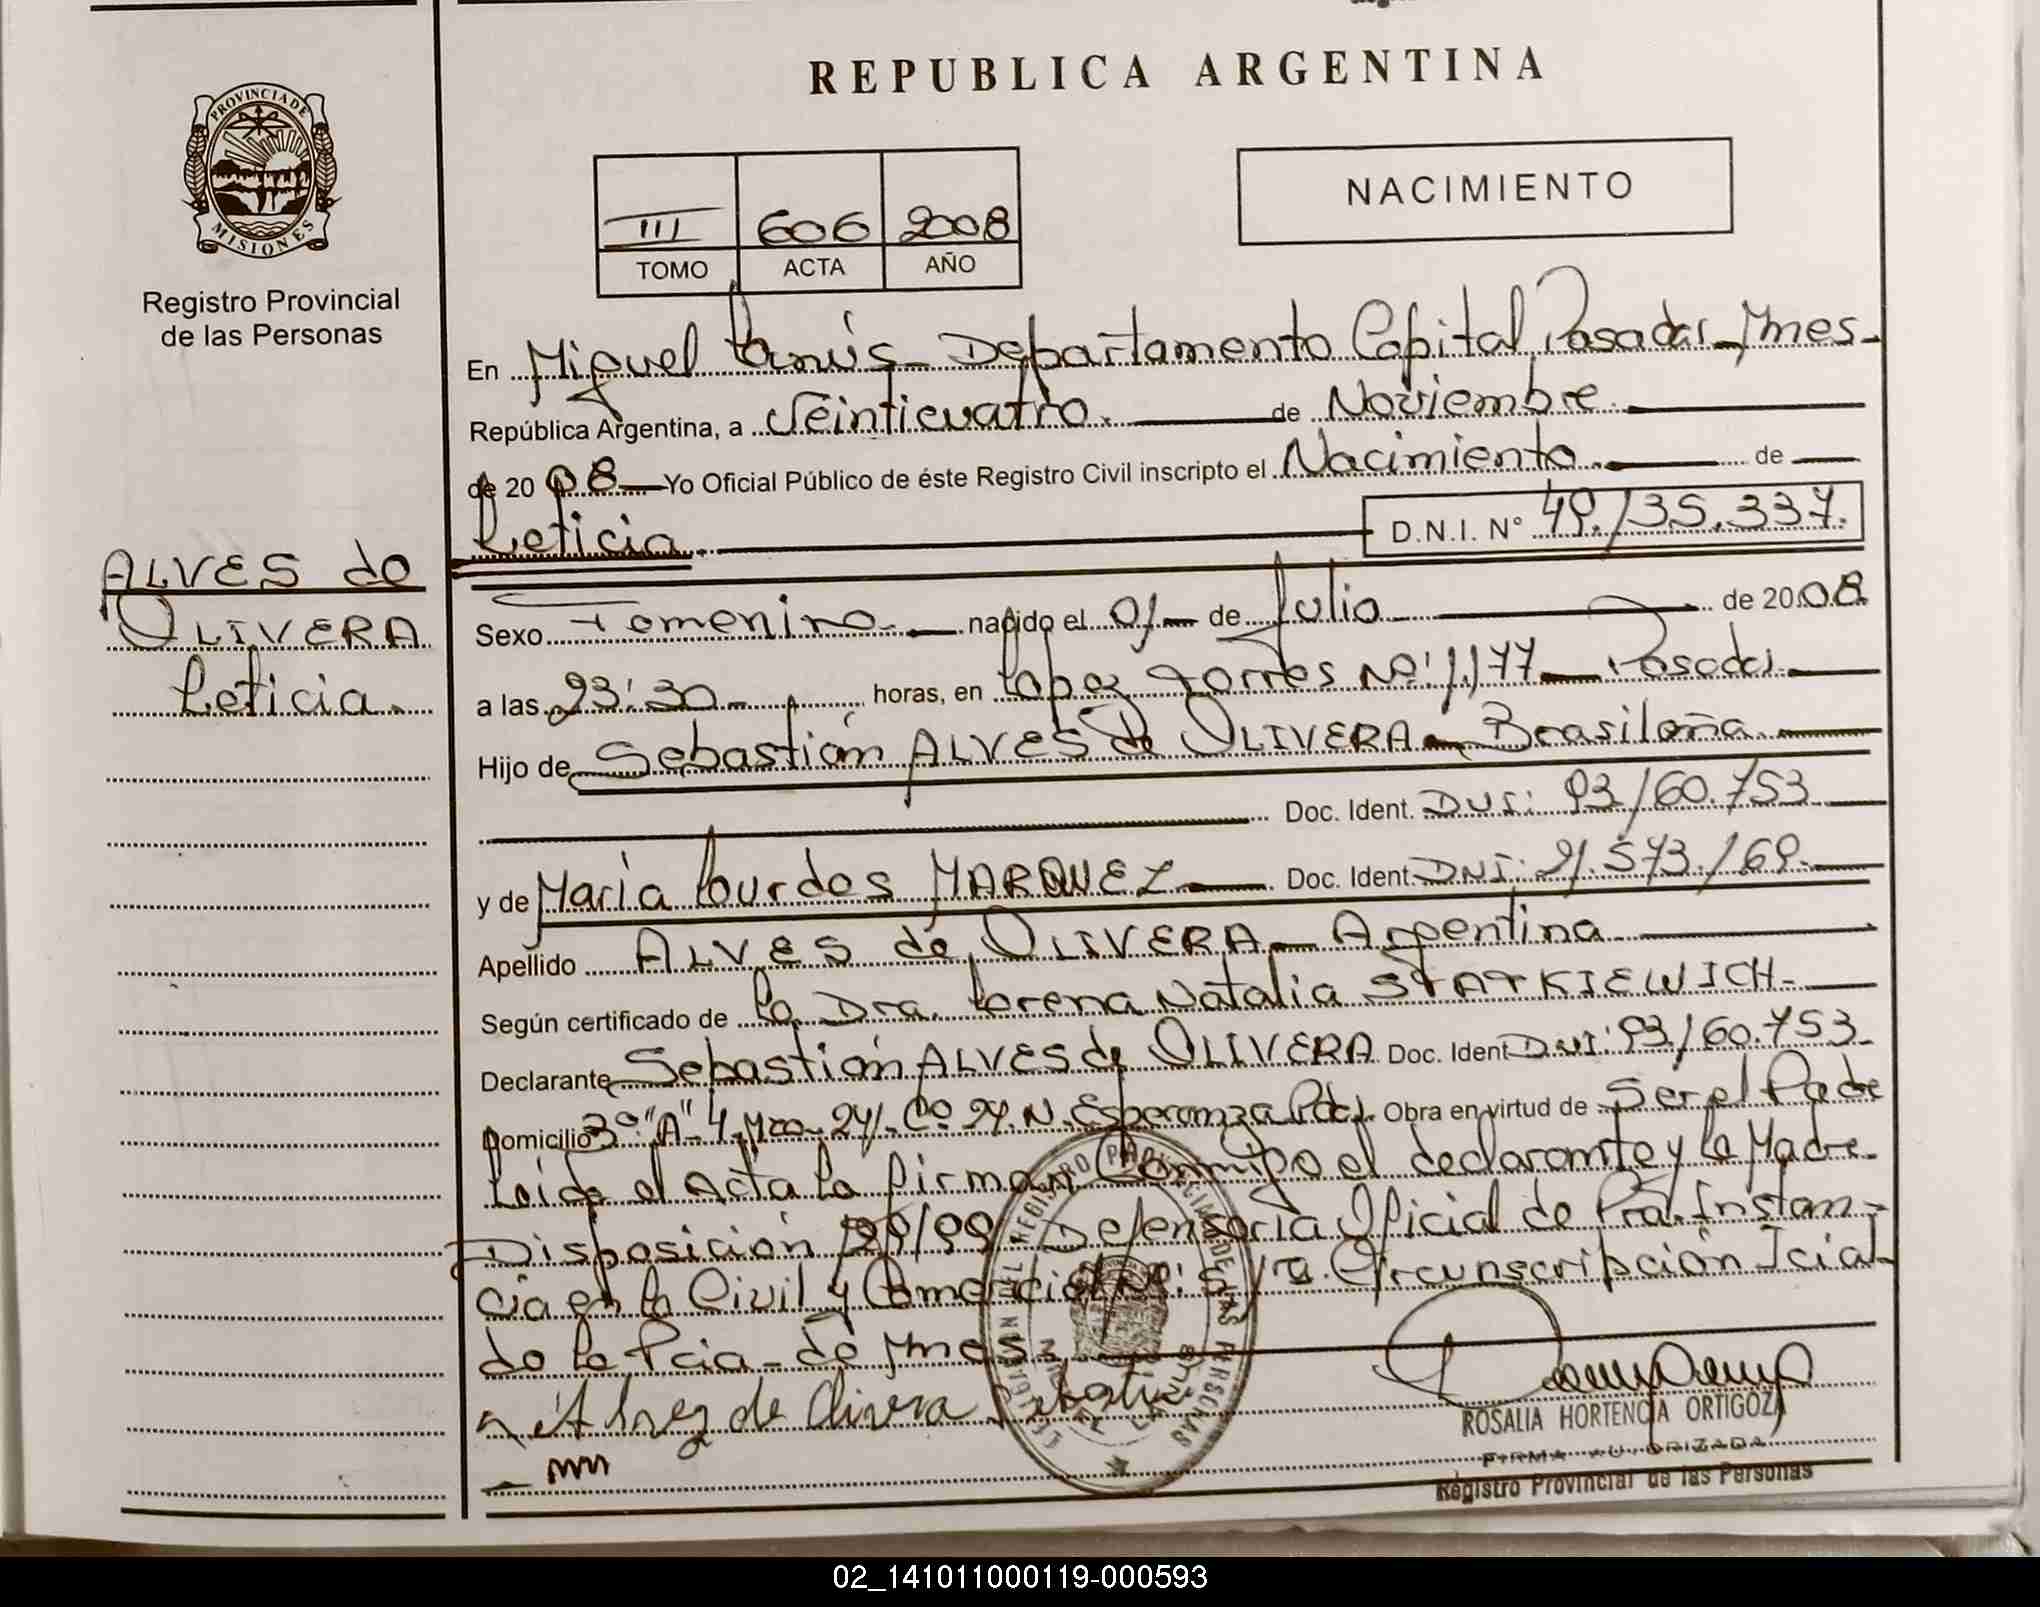 REPUBLICA ARGENTINA
PROVINCIA DE
MISIONES
Registro Provincial
de las Personas
NACIMIENTO
III 606 2008
TOMO ACTA AÑO
En Miguel Lanús - Departamento Capital, Posadas - Mnes -
República Argentina, a Veinticuatro. de Noviembre.
de 2008 - Yo Oficial Público de éste Registro Civil inscripto el Nacimiento. de
Leticia. D.N.I. N° 49.135.337.
ALVES de
OLIVERA
Leticia.
Sexo Femenino. nacido el 01 - de Julio de 2008.
a las 23:30 horas, en López Torres Nº: 1.177 - Posadas.
Hijo de Sebastián ALVES de OLIVERA - Brasileña.
Doc. Ident. DNI: 93.160.753
y de María Lourdes MARQUEZ Doc. Ident. DNI: 21.573.169.
Apellido ALVES de OLIVERA - Argentina
Según certificado de la Dra. Lorena Natalia STATKIEWICH -
Declarante Sebastián ALVES de OLIVERA Doc. Ident DNI: 93.160.753 -
Domicilio 3º "A" 4 - Mza - 241 - Cº 24. N. Esperanza Pdas. Obra en virtud de Ser el Padre
Leida el Acta la firman Conmigo el declarante y la Madre -
Disposición 199/99 Defensoría Oficial de Pra. Instan-
cia en lo Civil y Comercial Nº: 5 1ra. Circunscripción Jcial -
de la Pcia - de Mnes
Alvez de Olivera
ROSALIA HORTENCIA ORTIGOZA
FIRMA AUTORIZADA
Registro Provincial de las Personas
02_141011000119-000593